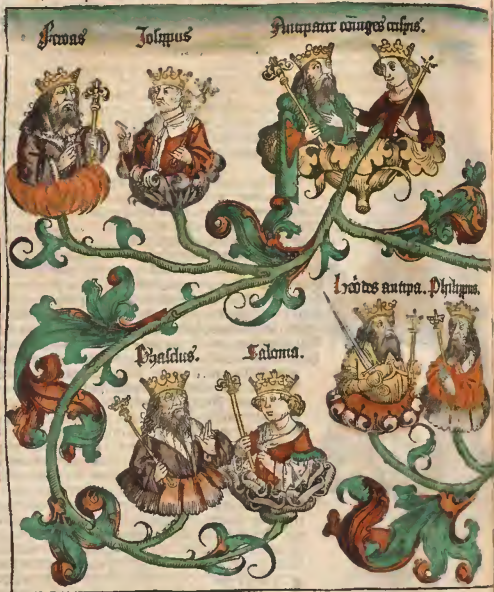 Feroas Iosippus Antipater cōiuges
Herodes antipa. Philippus.
Phaselus. Saloma.